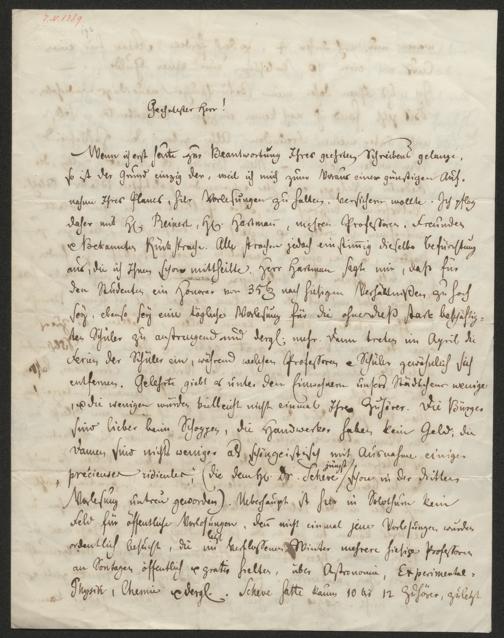 7.V.1839
Geehrtester Herr!
Wenn ich erst heute zur Beantwortung Ihres geehrten Schreibens gelange,
so ist der Grund einzig der, weil ich mich zum Voraus einer günstigen Auf-
nahme Ihres Planes, hier Vorlesungen zu halten, versichern wollte. Ich pflog
daher mit H. Reinert, H. Hartman, mehren Professoren, Freunden
& Bekannten Rücksprache. Alle sprachen jedoch einstimmig dieselbe Befürchtung
aus, die ich Ihnen schon mittheilte. Herr Hartman sagte mir, daß für
den Studenten ein Honorar von 35 nach hiesigen Verhältnißen zu hoch
sey, ebenso sey eine tägliche Vorlesung für die ohnedieß stark beschäftig-
ten Schüler zu anstrengend und dergl. mehr. Dann treten im April die
Ferien der Schüler ein, während welchen Professoren & Schüler gewöhnlich sich
entfernen. Gelehrte giebt es unter den Einwohnern unsers Städtchens wenige
, & die wenigen würden vielleicht nicht einmal Ihre Zuhörer. Die Bürger
sind lieber beim Schoppen, die Handwerker haben kein Geld, die
Damen sind nichts weniger als schöngeistisch mit Ausnahme einiger
précieuses ridicules, (die dem H. Dr. Scheve jüngst schon in der dritten
Vorlesung untreu geworden). Ueberhaupt ist hier in Solothurn kein
Feld für öffentliche Vorlesungen, denn nicht einmal jene Vorlesungen wurden
ordentlich besucht, die im letzt verflossenen Winter mehrere hiesige Professoren
an Sonntagen öffentlich & gratis hielten, über Astronomie, Experimental-
Physik, Chemie & dergl. Scheve hatte kaum 10 bis 12 Zuhörer, zuletzt